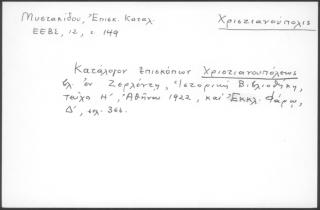 Μυστακίδου, Ἐπισκ. Καταλ.
ΕΕΒΣ, 12, σ. 149
Χριστιανούπολις
Κατάλογον Ἐπισκόπων Χριστιανουπόλεως
βλ. ἐν Ζερλέντη, Ἱστορικὴ Βιβλιοθήκη,
τεῦχο Η', Ἀθῆναι 1922, καὶ Ἐκκλ. Φάρῳ,
Δ', σελ. 366.